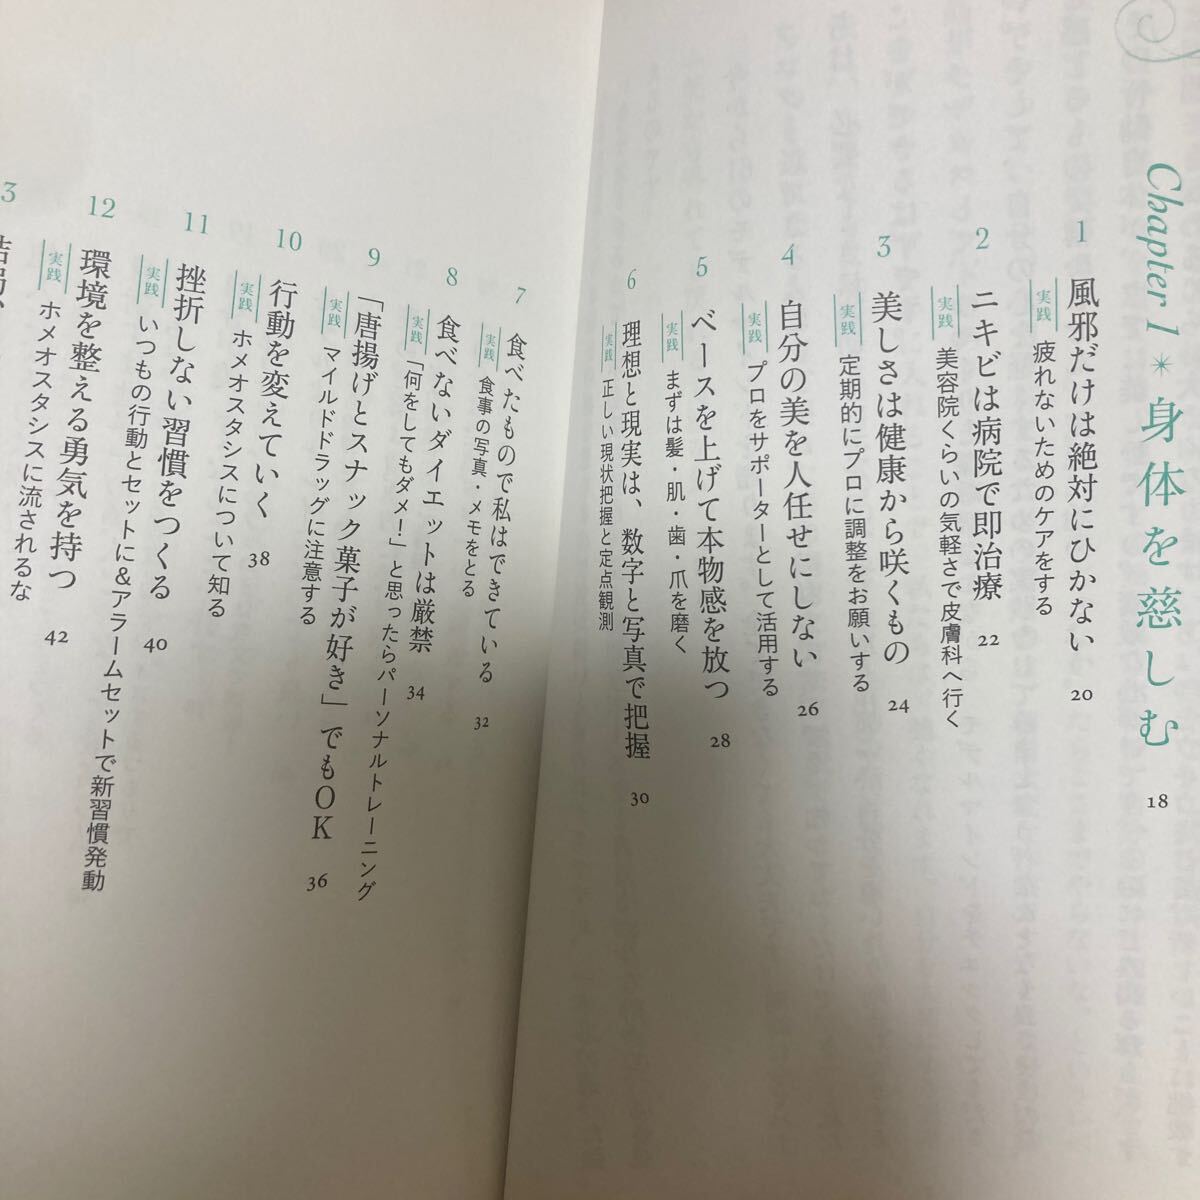 Chapter 1 ✴ 身体を慈しむ 18
1 風邪だけは絶対にひかない 20
実践 疲れないためのケアをする
2 ニキビは病院で即治療 22
実践 美容院くらいの気軽さで皮膚科へ行く
3 美しさは健康から咲くもの 24
実践 定期的にプロに調整をお願いする
4 自分の美を人任せにしない 26
実践 プロをサポーターとして活用する
5 ベースを上げて本物感を放つ 28
実践 まずは髪・肌・歯・爪を磨く
6 理想と現実は、数字と写真で把握 30
実践 正しい現状把握と定点観測
7 食べたもので私はできている 32
実践 食事の写真・メモをとる
8 食べないダイエットは厳禁 34
実践 「何をしてもダメ!」と思ったらパーソナルトレーニング
9 「唐揚げとスナック菓子が好き」でもOK 36
実践 マイルドドラッグに注意する
10 行動を変えていく 38
実践 ホメオスタシスについて知る
11 挫折しない習慣をつくる 40
実践 いつもの行動とセットに&アラームセットで新習慣発動
12 環境を整える勇気を持つ 42
実践 ホメオスタシスに流されるな
3